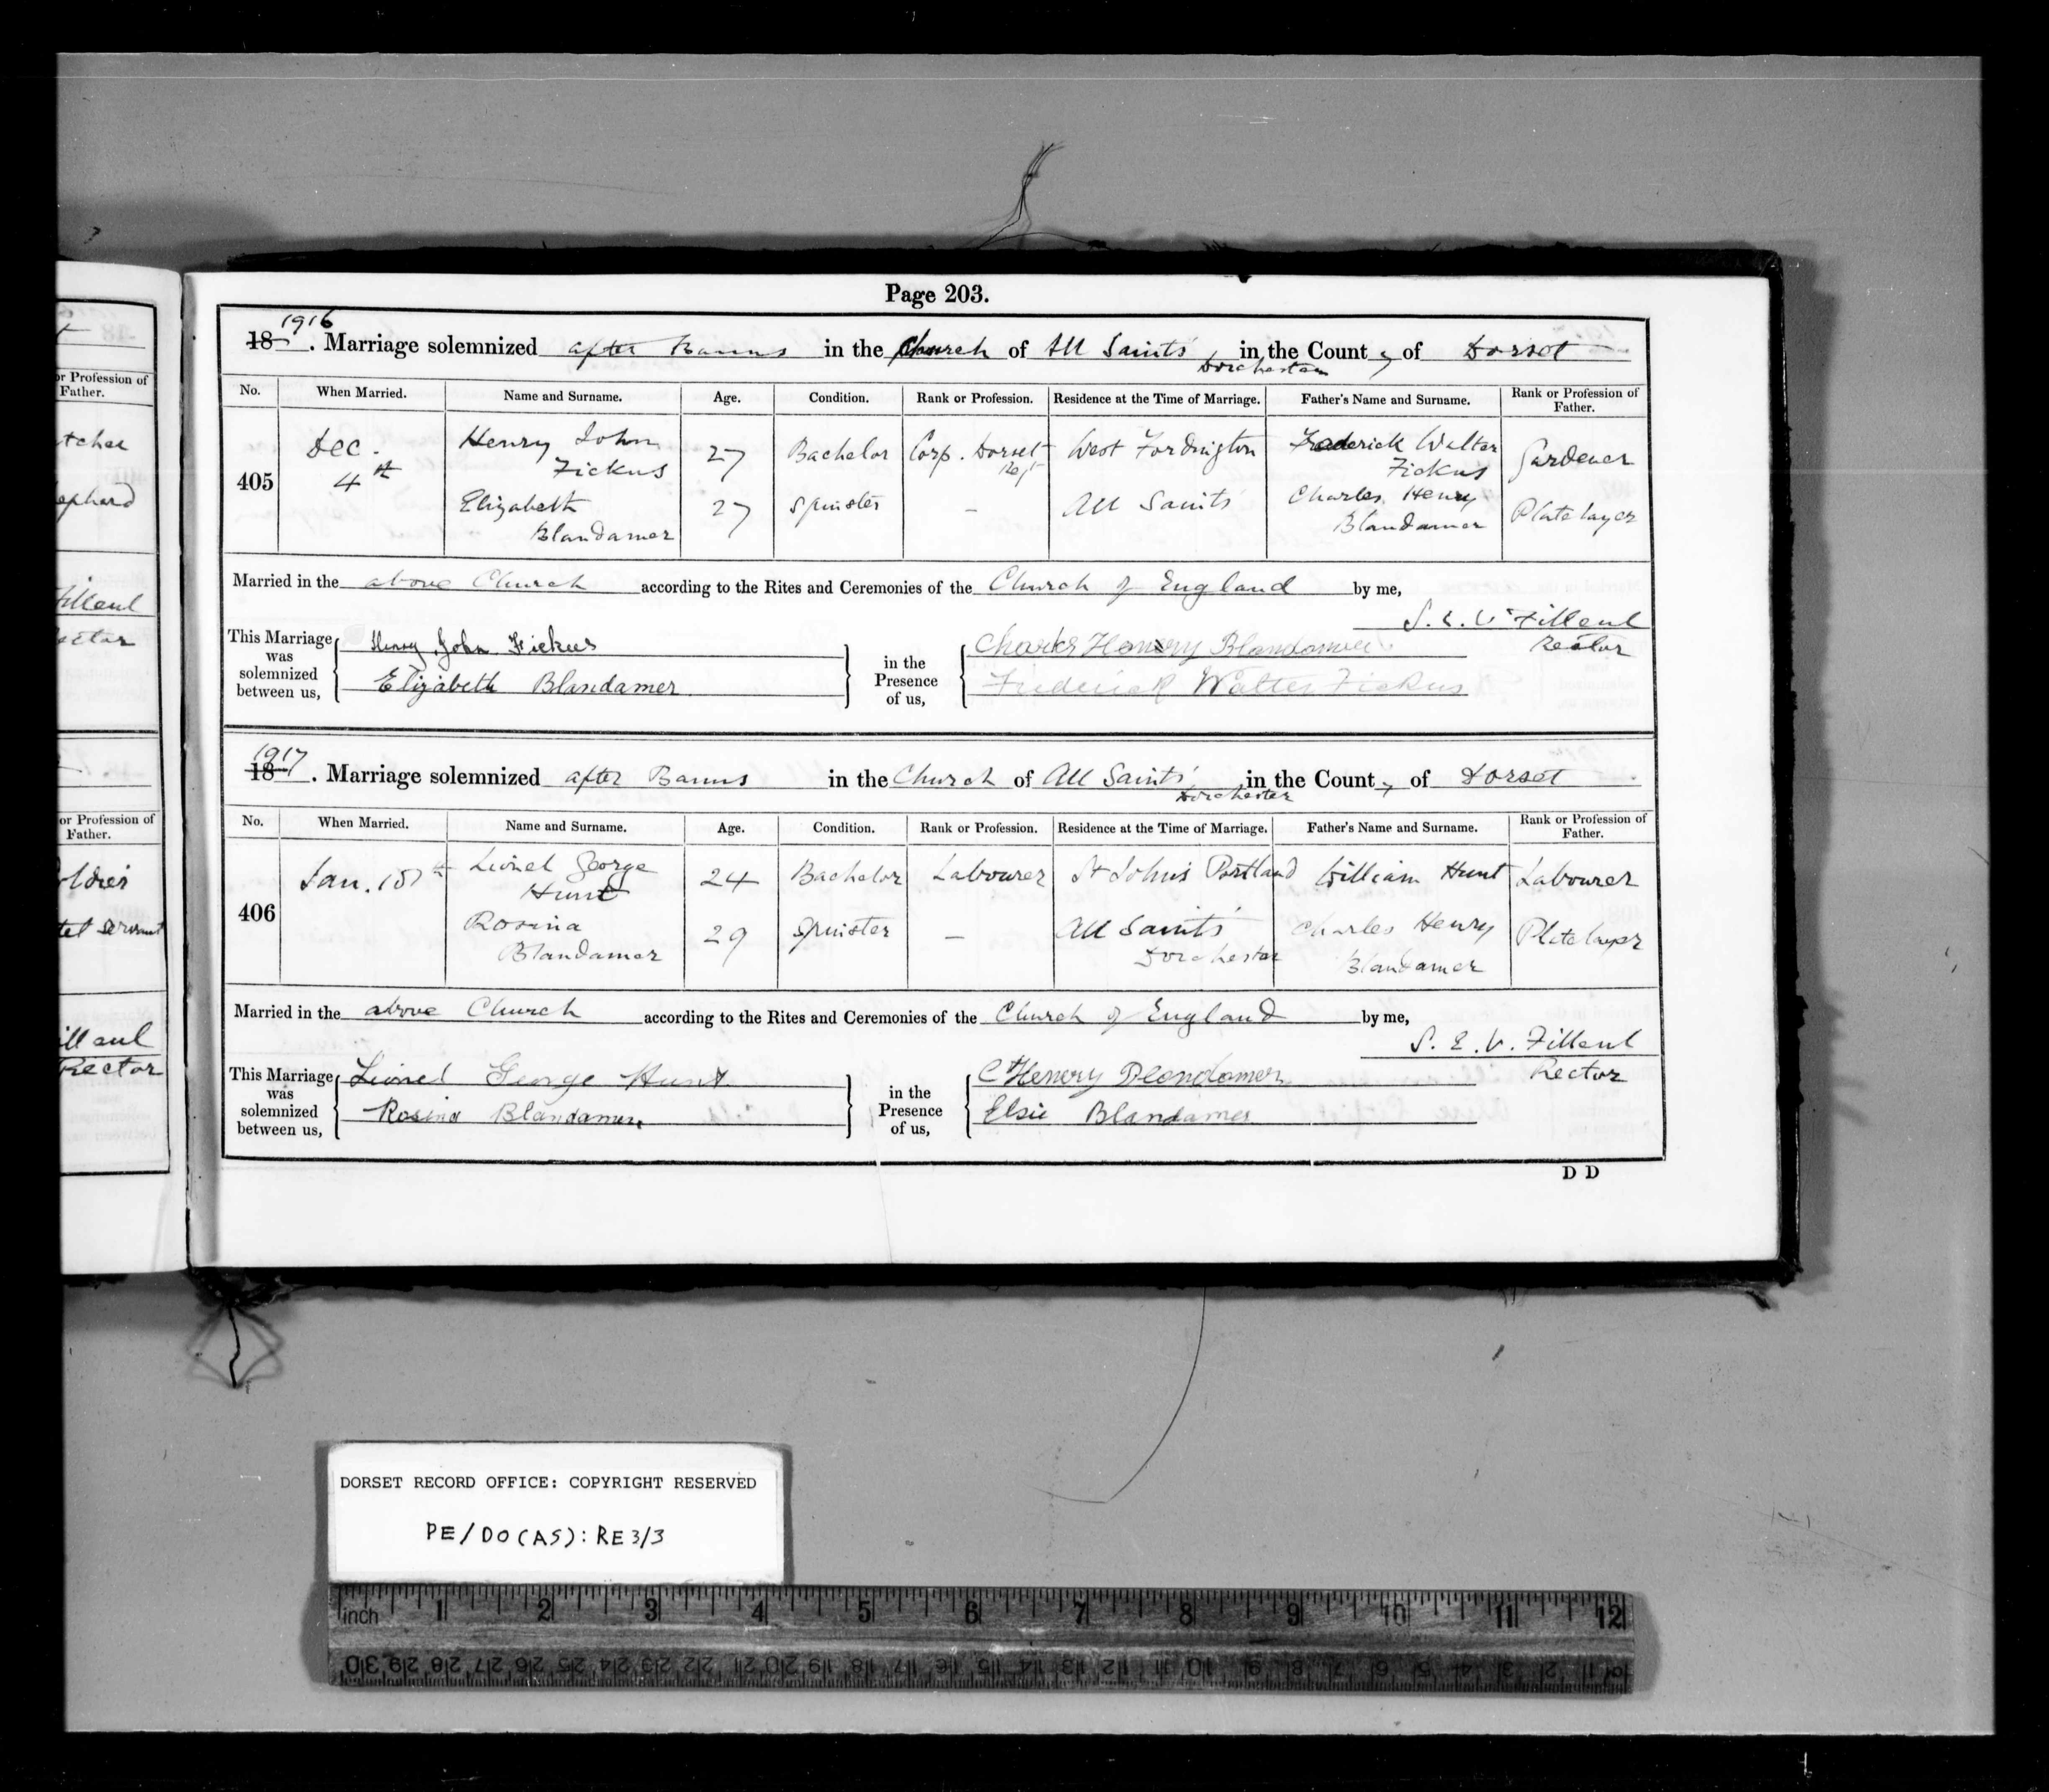 Page 203.
1916
18 . Marriage solemnized after Banns in the Church of All Saints' in the County of Dorset
Dorchester
No. When Married. Name and Surname. Age. Condition. Rank or Profession. Residence at the Time of Marriage. Father's Name and Surname. Rank or Profession of Father.
405 Dec. 4th Henry John Fickus 27 Bachelor Corp. Dorset Regt West Fordington Frederick Walter Fickus Gardener
Elizabeth Blandamer 27 Spinster – All Saints' Charles Henry Blandamer Platelayer
Married in the above Church according to the Rites and Ceremonies of the Church of England by me,
S. E. V. Filleul
Rector
This Marriage was solemnized between us, Henry John Fickus in the Presence of us, Charles Henery Blandamer
Elizabeth Blandamer Frederick Walter Fickus
1917
18 . Marriage solemnized after Banns in the Church of All Saints' in the County of Dorset
Dorchester
No. When Married. Name and Surname. Age. Condition. Rank or Profession. Residence at the Time of Marriage. Father's Name and Surname. Rank or Profession of Father.
406 Jan. Lionel George Hunt 24 Bachelor Labourer St Johns Portland William Hunt Labourer
Rosina Blandamer 29 Spinster – All Saints' Dorchester Charles Henry Blandamer Platelayer
Married in the above Church according to the Rites and Ceremonies of the Church of England by me,
S. E. V. Filleul
Rector
This Marriage was solemnized between us, Lionel George Hunt in the Presence of us, C Henery Blandamer
Rosina Blandamer Elsie Blandamer
D D
or Profession of
Father.
or Profession of
Father.
Rector
DORSET RECORD OFFICE: COPYRIGHT RESERVED
PE/DO(AS): RE3/3
inch 1 2 3 4 5 6 7 8 9 10 11 12
30 29 28 27 26 25 24 23 22 21 20 19 18 17 16 15 14 13 12 11 10 9 8 7 6 5 4 3 2 1